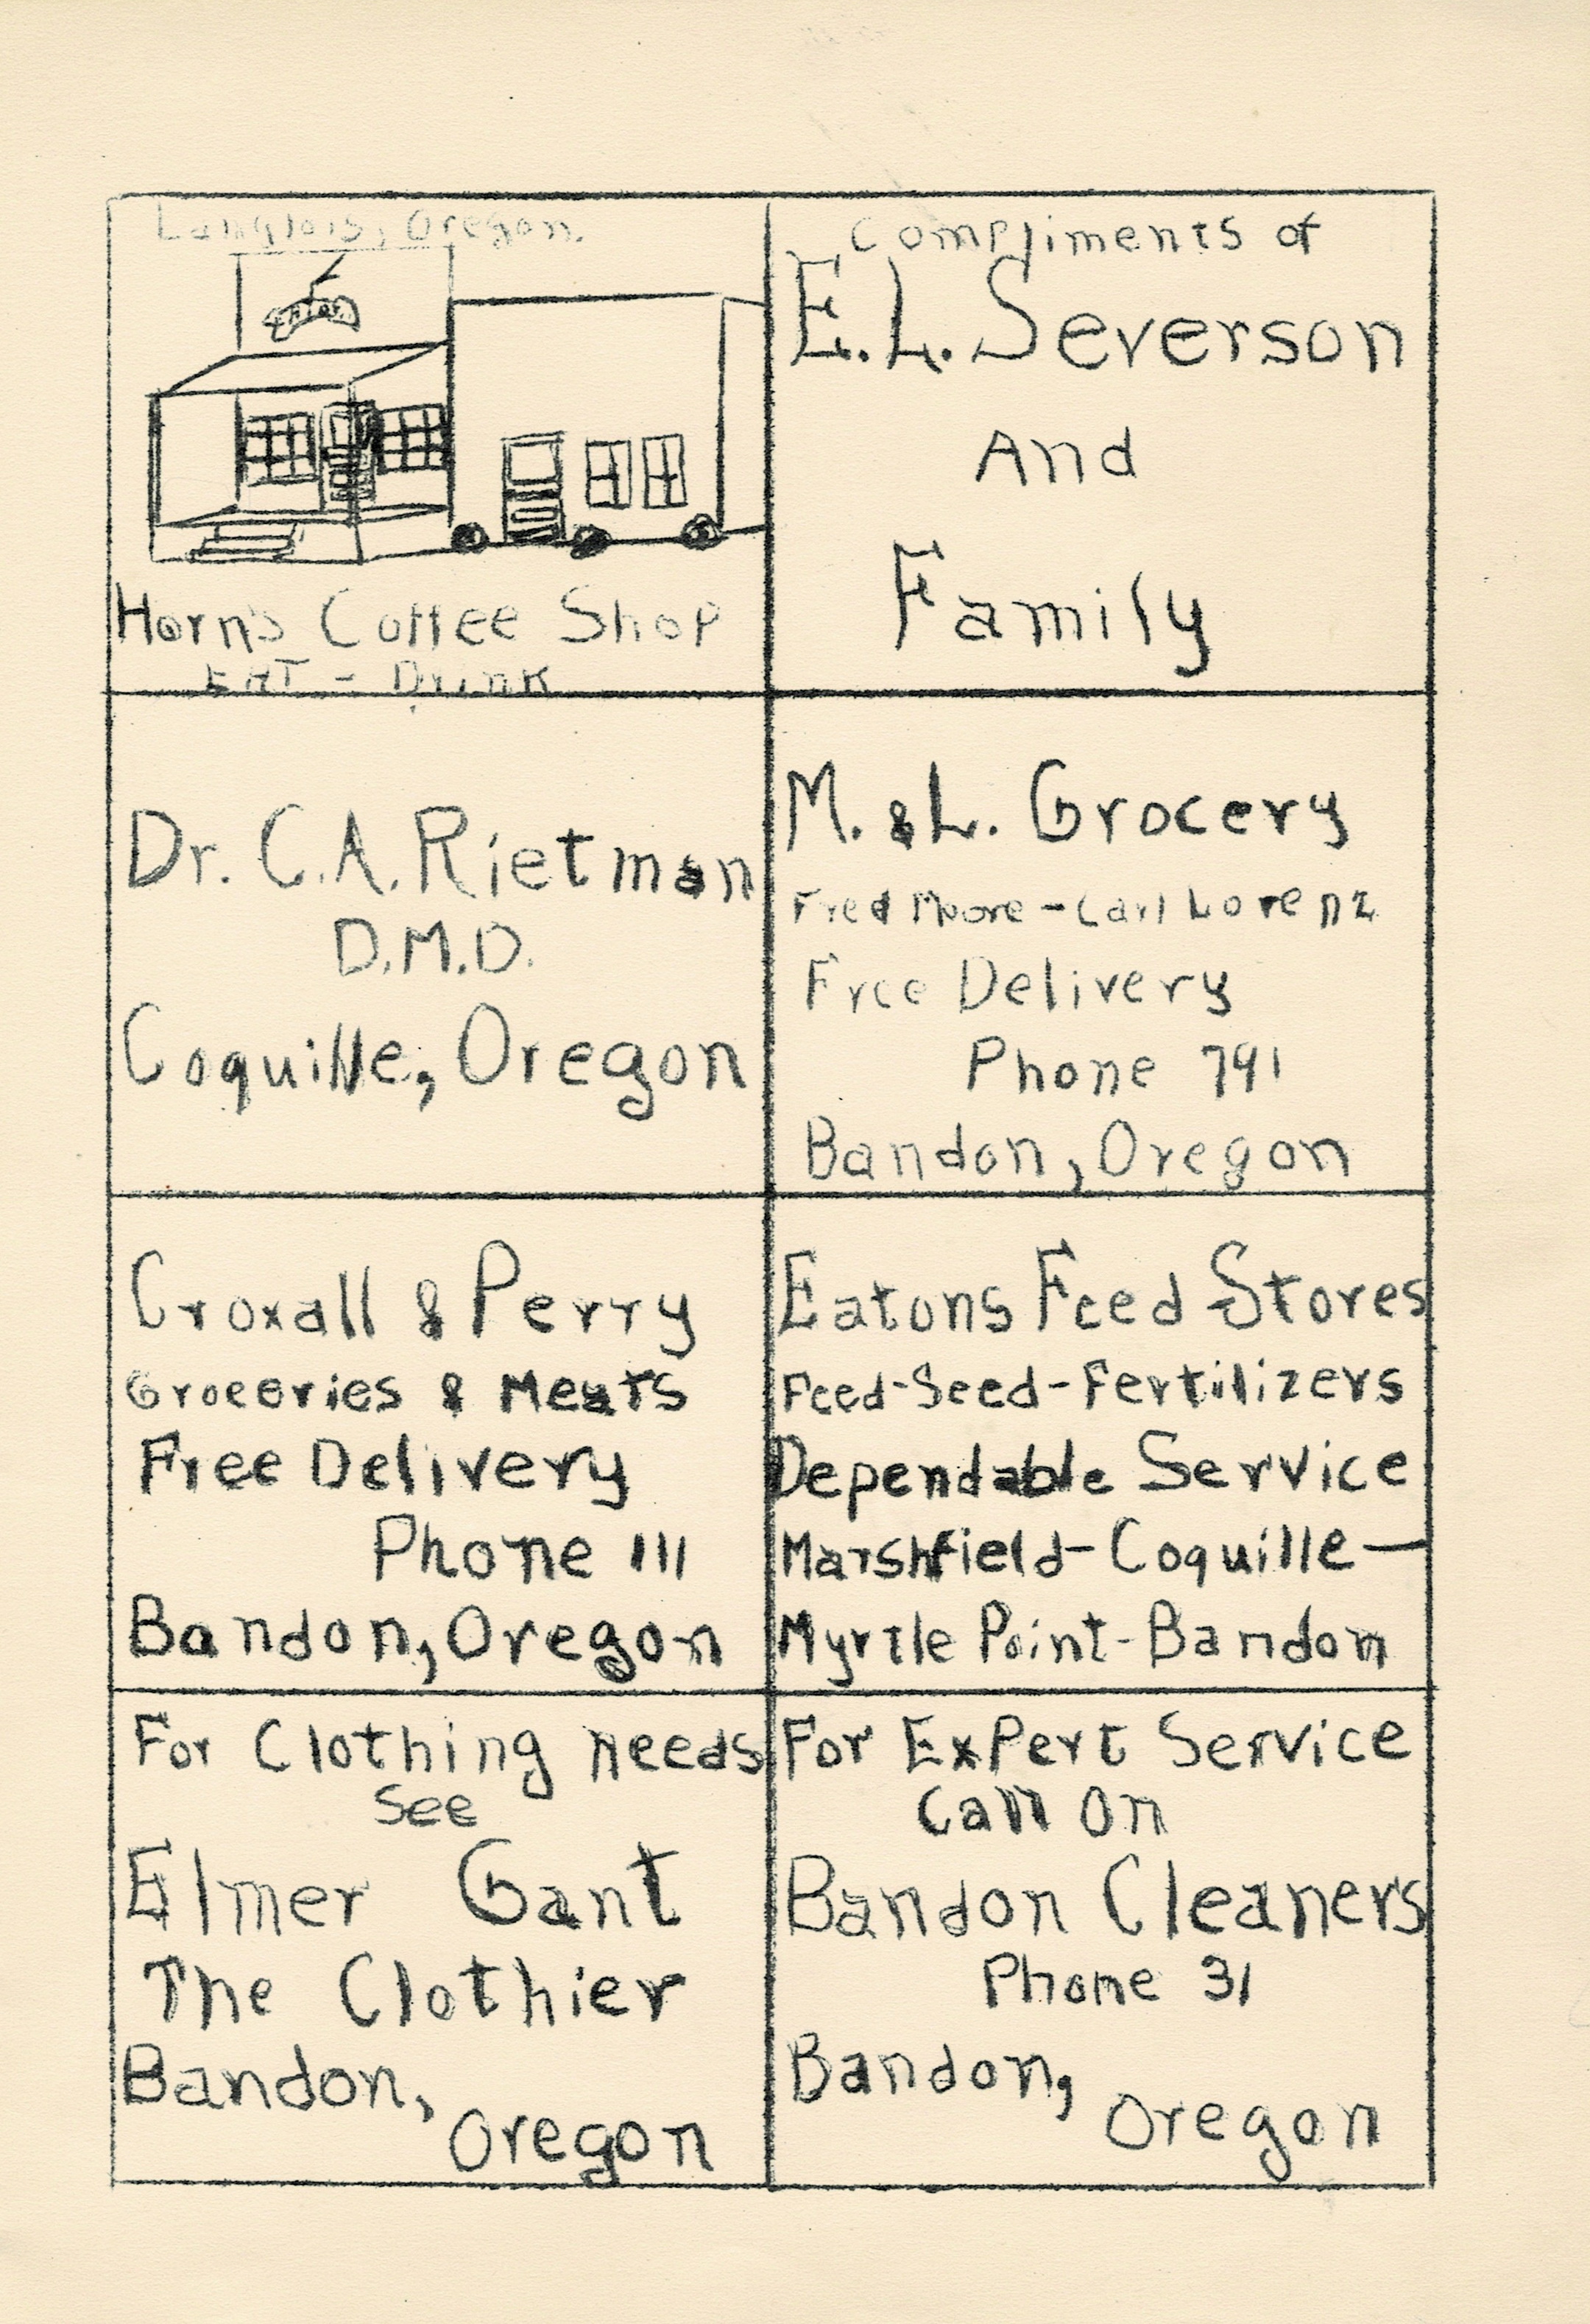 Langlois, Oregon.
Horn's Coffee Shop
EAT - Drink
Compliments of
E. L. Severson
And
Family
Dr. C. A. Rietman
D.M.D.
Coquille, Oregon
M. & L. Grocery
Fred Moore - Carl Lorenz
Free Delivery
Phone 791
Bandon, Oregon
Croxall & Perry
Groceries & Meats
Free Delivery
Phone 111
Bandon, Oregon
Eatons Feed Stores
Feed-Seed-Fertilizers
Dependable Service
Marshfield-Coquille-
Myrtle Point-Bandon
For Clothing Needs
See
Elmer Gant
The Clothier
Bandon,
Oregon
For ExPert Service
Call On
Bandon Cleaners
Phone 31
Bandon,
Oregon